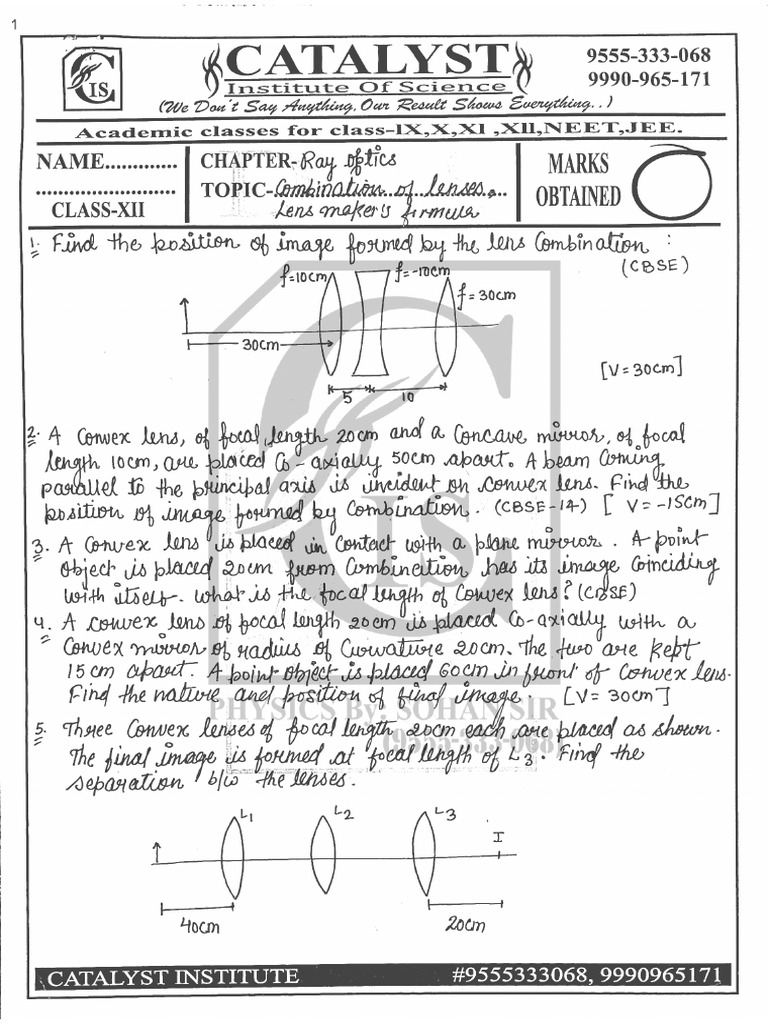 1
CIS
CATALYST
Institute Of Science
(We Don't Say Anything, Our Result Shows Everything..)
9555-333-068
9990-965-171
Academic classes for class-IX,X,XI ,XII,NEET,JEE.
NAME.............
.........................
CLASS-XII
CHAPTER- Ray optics
TOPIC- Combination of lenses,
Lens maker's formula
MARKS
OBTAINED
1. Find the position of image formed by the lens Combination :
(CBSE)
f=10cm
f=-10cm
f=30cm
30cm
5
10
[V=30cm]
2. A Convex lens, of focal length 20cm and a Concave mirror, of focal
length 10cm, are placed Co-axially 50cm apart. A beam Coming
parallel to the principal axis is incident on convex lens. Find the
position of image formed by Combination. (CBSE-14) [V=-15cm]
3. A Convex lens is placed in Contact with a plane mirror. A point
Object is placed 20cm from Combination has its image Coinciding
with itself. what is the focal length of Convex lens? (CBSE)
4. A convex lens of focal length 20cm is placed Co-axially with a
Convex mirror of radius of Curvature 20cm. The two are kept
15cm apart. A point Object is placed 60cm in front of Convex lens.
Find the nature and position of final image. [V=30cm]
PHYSICS By: SOHAN SIR
5. Three Convex lenses of focal length 20cm each are placed as shown.
(9555-333-068)
The final image is formed at focal length of L3. Find the
separation b/w the lenses.
L1
L2
L3
I
40cm
20cm
CATALYST INSTITUTE
#9555333068, 9990965171